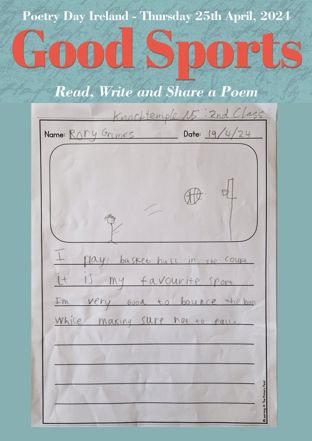 Poetry Day Ireland - Thursday 25th April, 2024
Good Sports
Read, Write and Share a Poem
Knocktemple NS : 2nd Class
Name: Rory Grimes Date: 19/4/24
I play basket ball in the court
it is my favourite sport
Im very good to bounce the ball
While making sure not to fall.